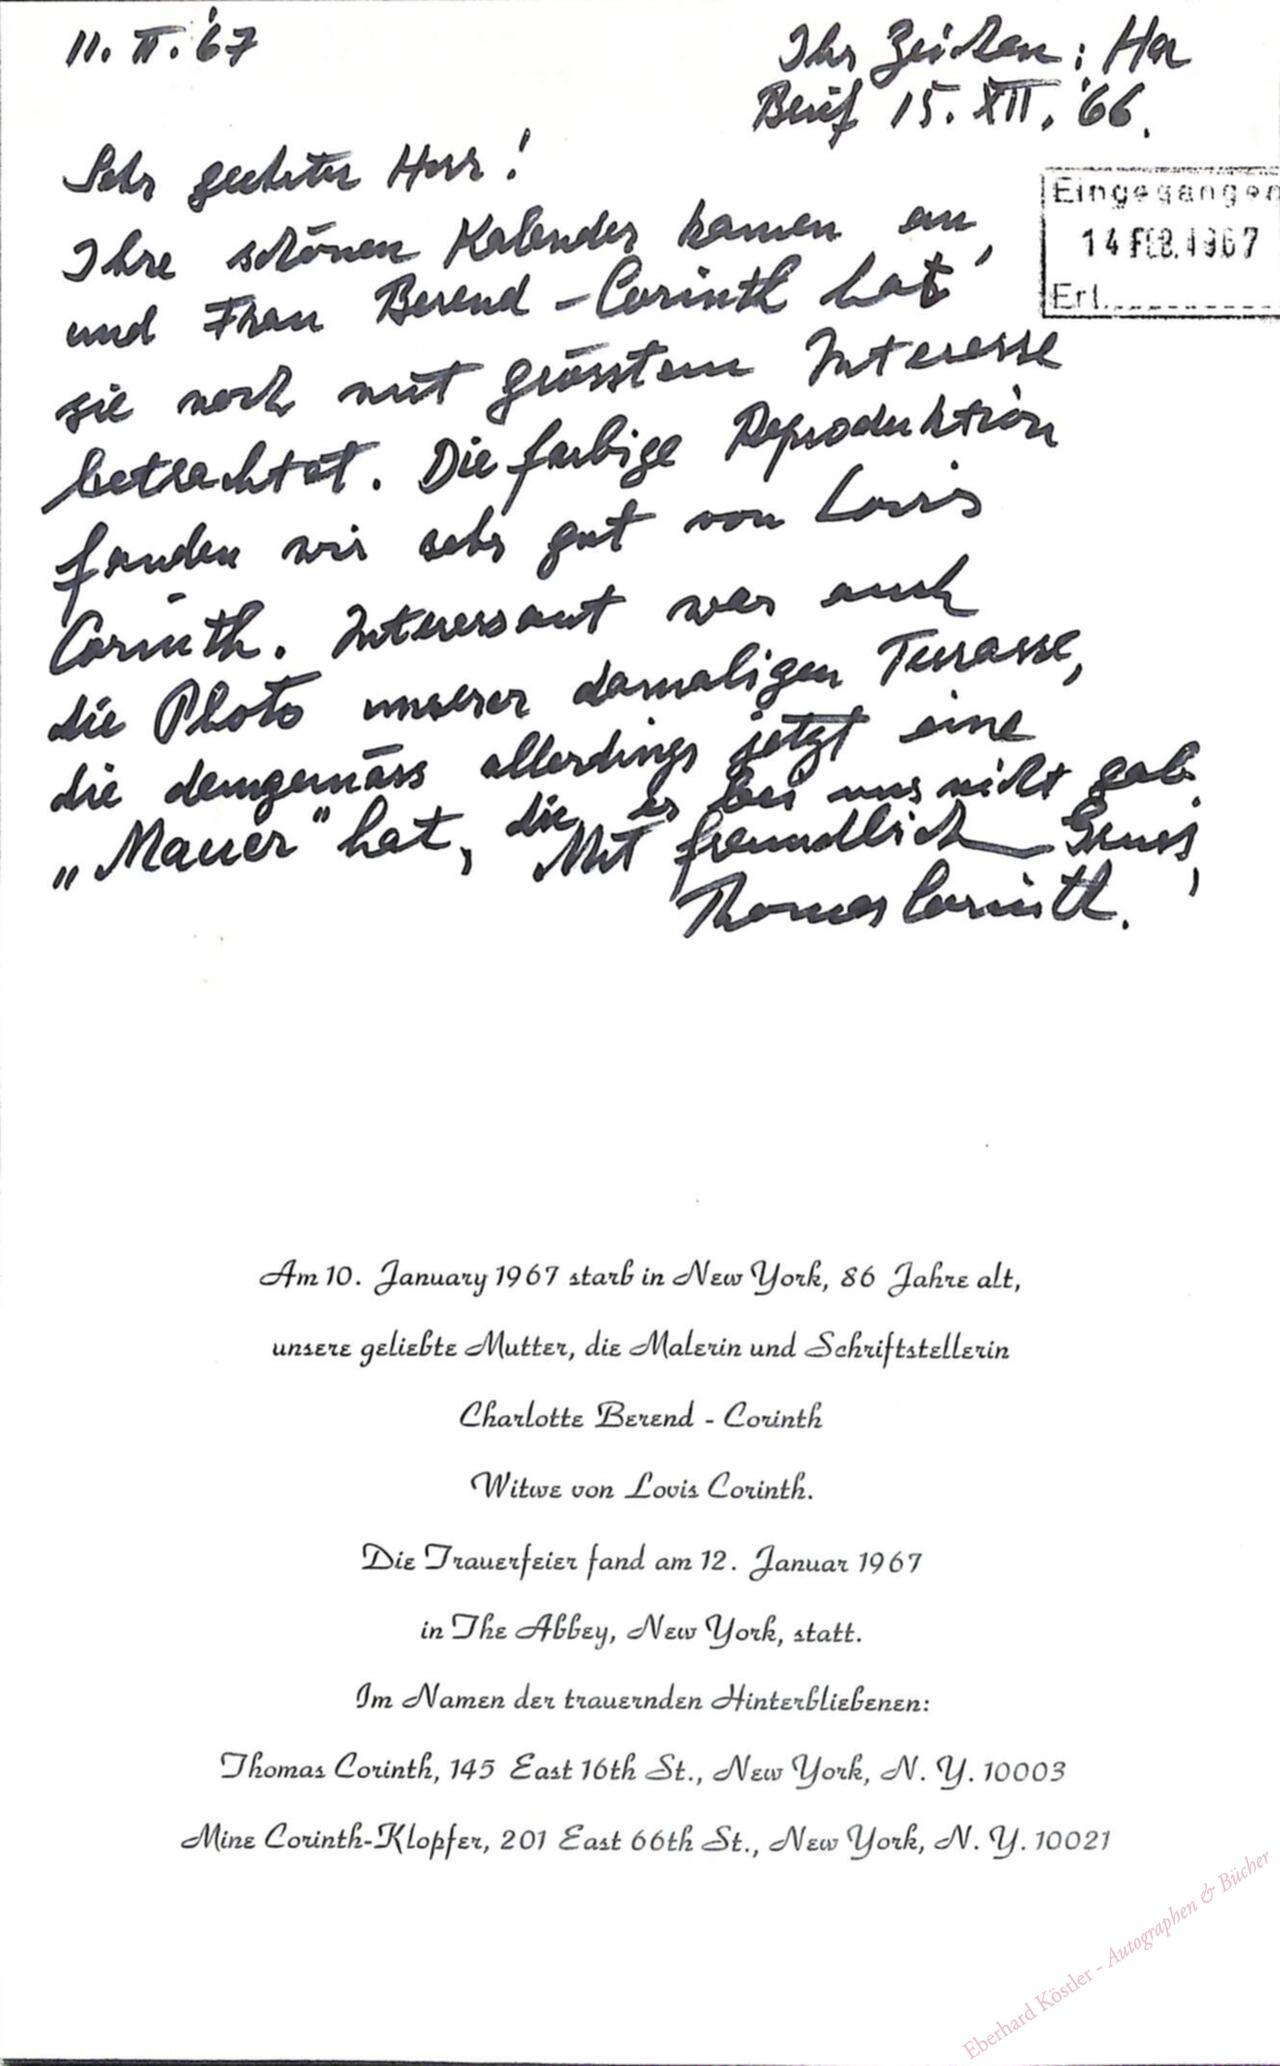 11. II. '67
Ihr Zeichen: Ha
Brief 15. XII. '66.
Sehr geehrter Herr!
Eingegangen
14 FEB. 1967
Erl.
Ihre schönen Kalender kamen an,
und Frau Berend-Corinth hat
sie noch mit grösstem Interesse
betrachtet. Die farbige Reproduktion
fanden wir sehr gut von Lovis
Corinth. Interessant war auch
die Photo unserer damaligen Terrasse,
die demgemäss allerdings jetzt eine
„Mauer" hat, die es bei uns nicht gab.
Mit freundlich Gruss,
Thomas Corinth.
Am 10. January 1967 starb in New York, 86 Jahre alt,
unsere geliebte Mutter, die Malerin und Schriftstellerin
Charlotte Berend - Corinth
Witwe von Lovis Corinth.
Die Trauerfeier fand am 12. Januar 1967
in The Abbey, New York, statt.
Im Namen der trauernden Hinterbliebenen:
Thomas Corinth, 145 East 16th St., New York, N. Y. 10003
Mine Corinth-Klopfer, 201 East 66th St., New York, N. Y. 10021
Eberhard Köstler - Autographen & Bücher